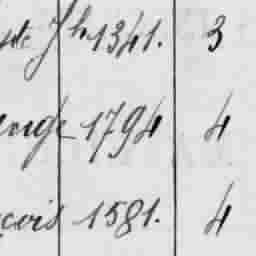 ste Jh 1341. 3
enge 1794 4
çois 1581. 4